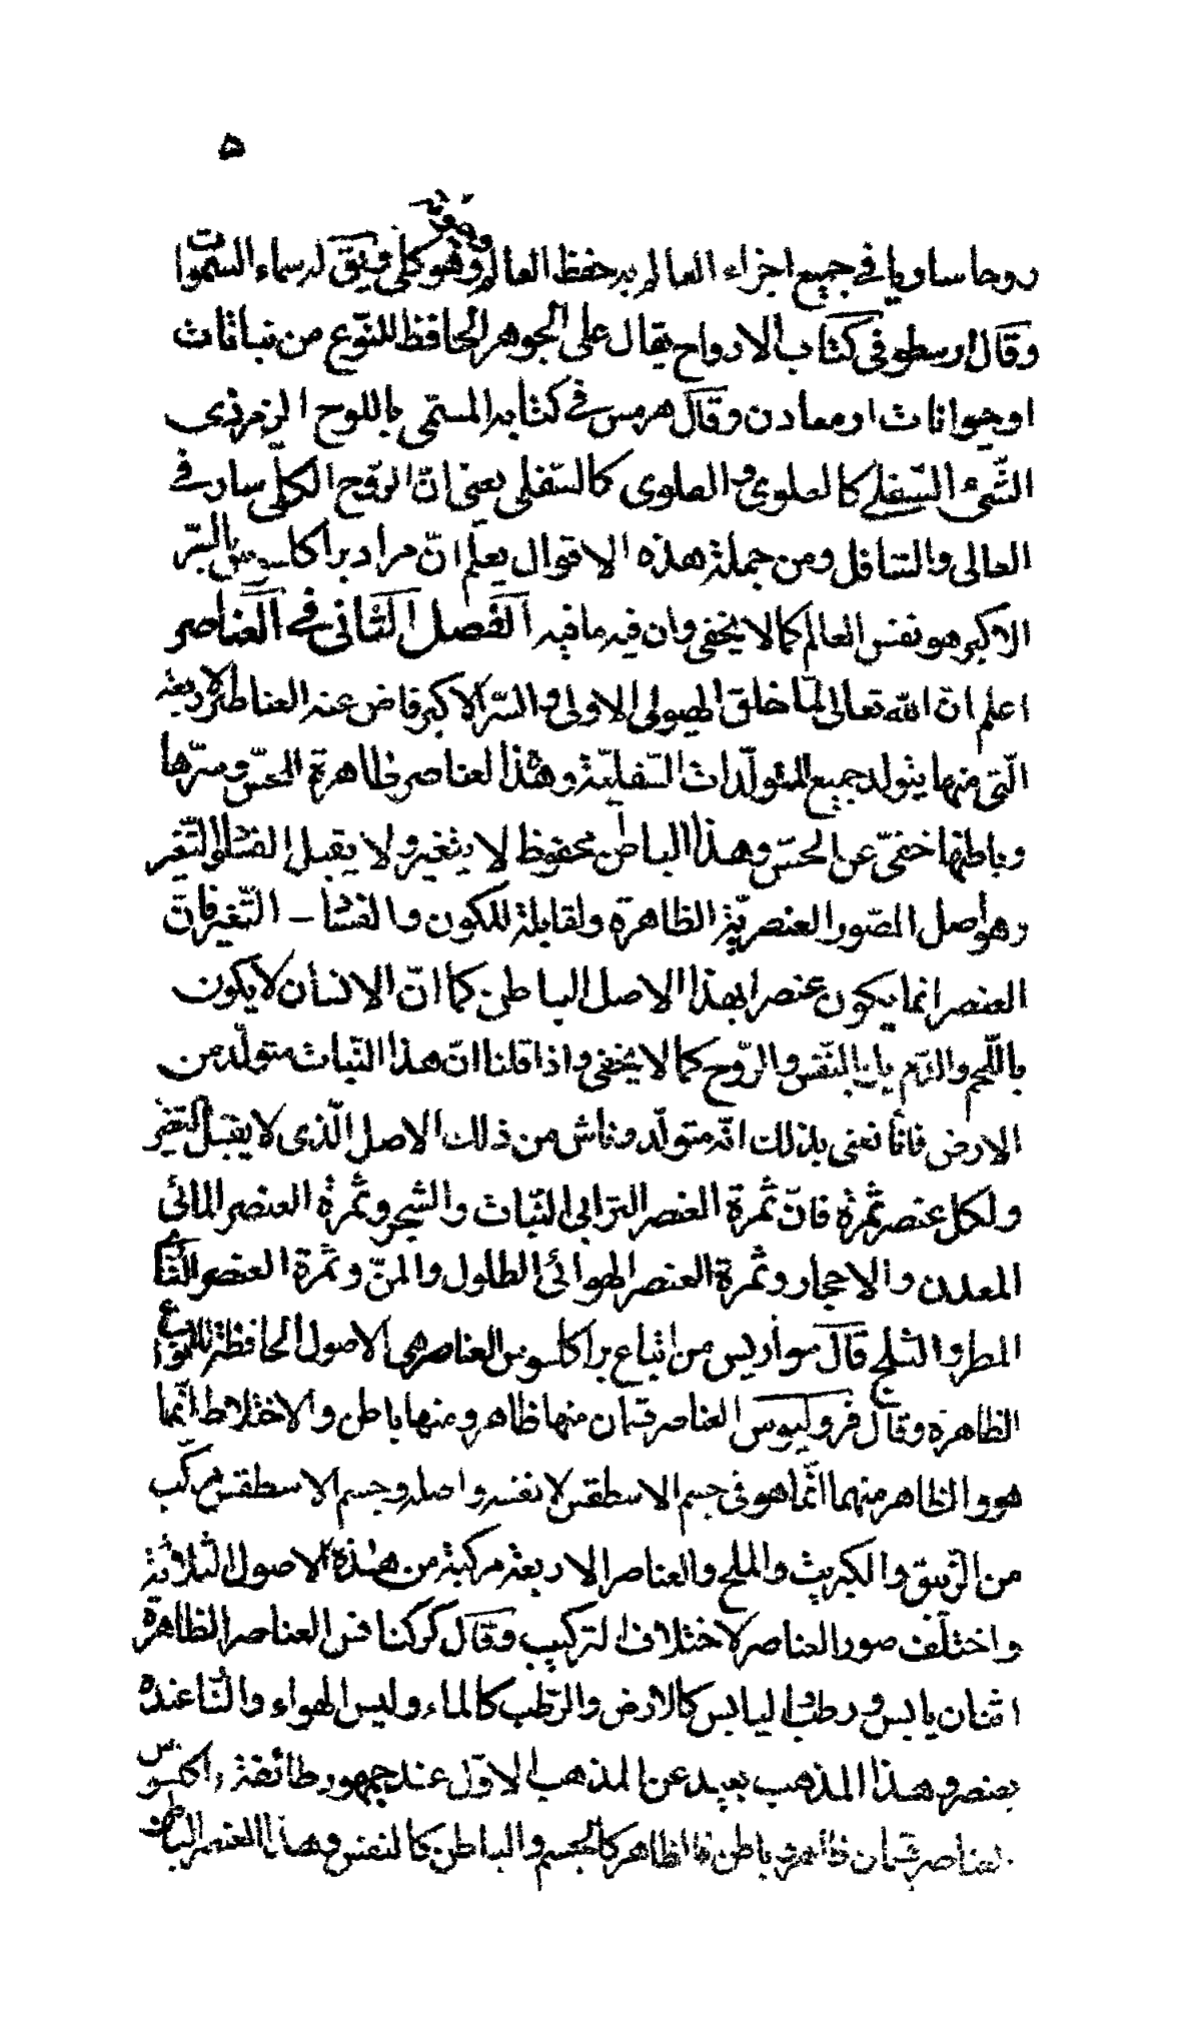 ٥
روحا ساريا في جميع اجزاء العالم به حفظ العالم وهو كلى ويق له سماء السموات
وقال ارسطو فى كتاب الارواح يقال على الجوهر الحافظ للنّوع من نباتات
او حيوانات او معادن وقال هرمس في كتابه المسمّى باللوح الزمرذى
الشّئ السّفلي كالعلوى والعلوى كالسّفلى يعنى انّ الرّوح الكلّى سار في
العالى والسّافل ومن جملة هذه الاقوال يعلم انّ مراد براكلسوس بالسّر
الاكبر هو نفس العالم كما لا يخفى وان فيه ما فيه الفصل الثّانى في العناصر
اعلم ان الله تعالى لمّا خلق الهيولى الاولى والسّر الاكبر فاض عنه العناصر الاربعة
الّتى منها يتولد جميع المتولّدات السّفليّة وهذا لعناصر ظاهرة الحسّ وسرّها
وباطنها خفىّ عن الحسّ وهذا الباطن محفوظ لا يتغير ولا يقبل الفساد والتّغير
وهو اصل الصّور العنصريّة الظاهرة ولقابلة للكون والفساد التّغير فانّ
العنصر انما يكون عنصرا بهذا الاصل الباطن كما انّ الانسان لا يكون
باللّحم والدّم بل بالنّفس والرّوح كما لا يخفى واذا قلنا انّ هذا النّبات متولّد من
الارض فانّا نعنى بذلك انّه متولّد وناش من ذلك الاصل الّذى لا يقبل التغير
ولكل عنصر ثمرة فانّ ثمرة العنصر الترابى النّبات والشجر وثمرة العنصر المائى
المعدن والاحجار وثمرة العنصر الهوائى الطلول والمنّ وثمرة العنصر النّارى
المطر والثلج قال سوأريس من اتباع براكلسوس العناصر هى الاصول الحافظة للانواع
الظاهرة وقال فرولبوس العناصر قسمان منها ظاهر ومنها باطن والاختلاط انّما
هو والظاهر منهما انّما هو فى جسم الاسطقس لا نفسه واصله وجسم الاسطقس مركّب
من الزّيبق والكبريت والملح والعناصر الاربعة مركبة من هذه الاصول الثلاثة
واختلف صور العناصر لاختلاف التركيب وقال كركنافس العناصر الظاهرة
اثنان يابس ورطب اليابس كالارض والرّطب كالماء وليس الهواء والنّار عنده
بعنصر وهذا المذهب بعيد عن المذهب الاوّل عند جمهور طائفة براكلسوس
العناصر قسمان ظاهر وباطن فالظاهر كالجسم والباطن كالنفس وهذا العنصر الباطن